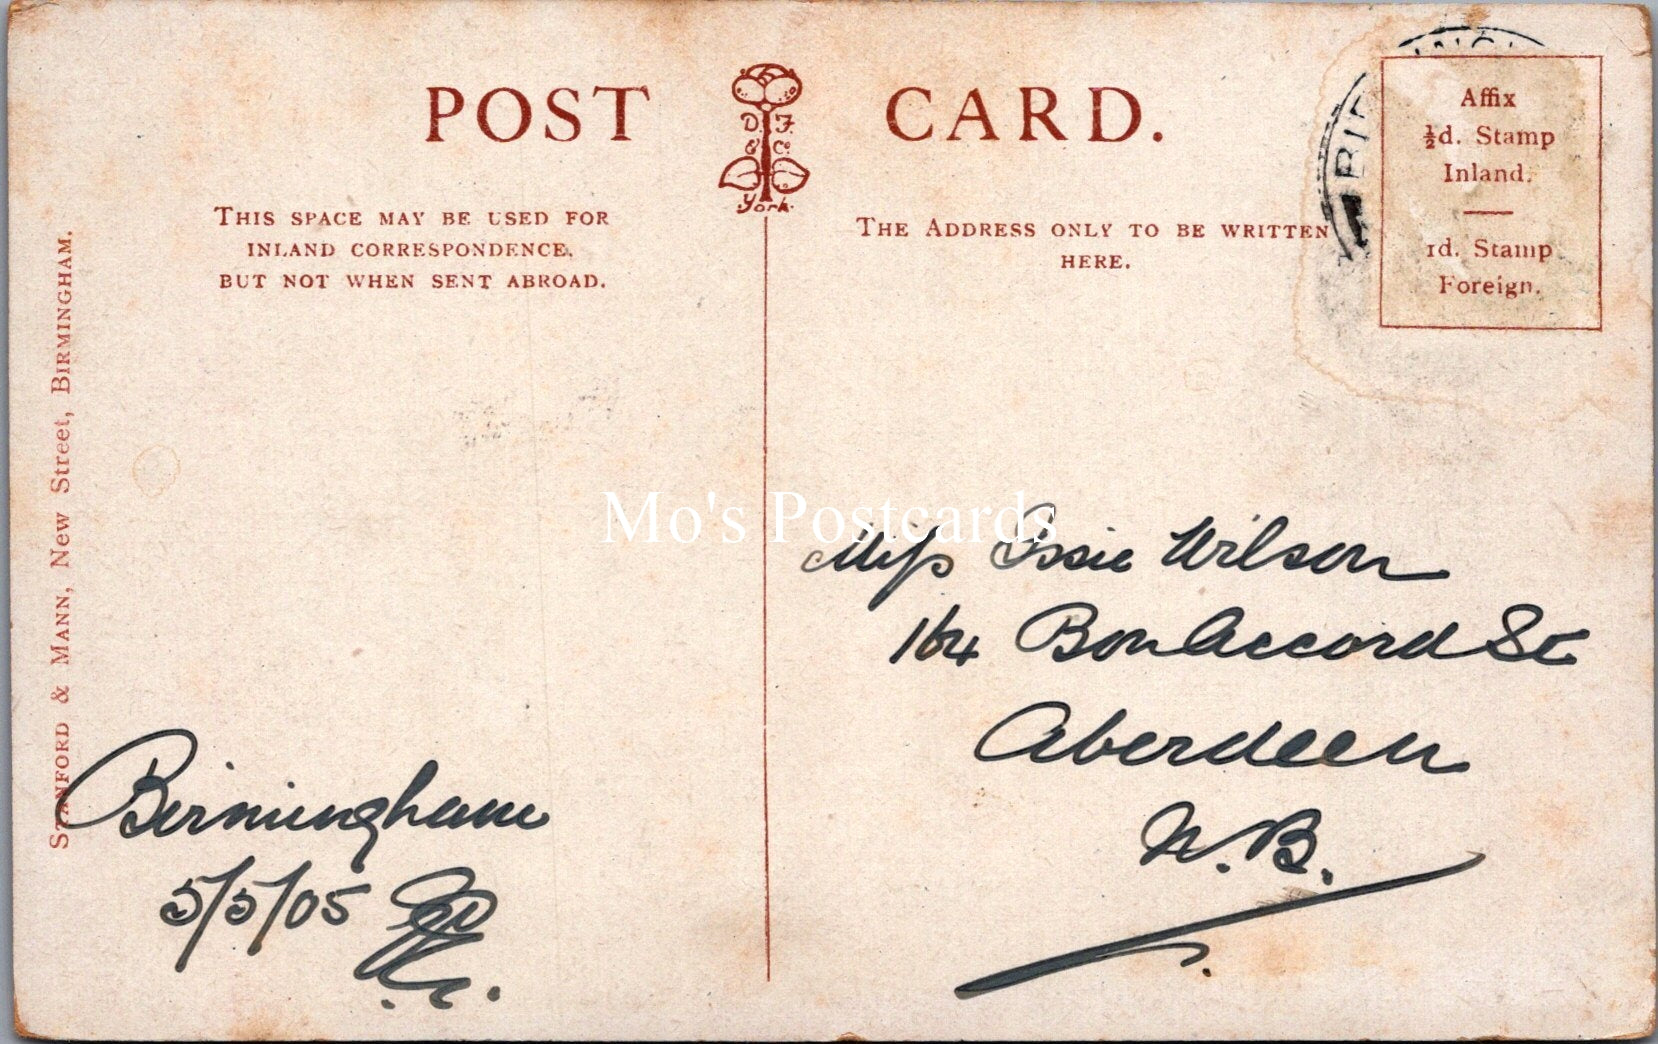 POST CARD.
D. F.
& Co
York.
THIS SPACE MAY BE USED FOR
INLAND CORRESPONDENCE.
BUT NOT WHEN SENT ABROAD.
THE ADDRESS ONLY TO BE WRITTEN
HERE.
Affix
½d. Stamp
Inland.
1d. Stamp
Foreign.
STANFORD & MANN, New Street, BIRMINGHAM.
Mo's Postcards
Miss Issie Wilson
164 Bon Accord St
Aberdeen
N.B.
Birmingham
5/5/05